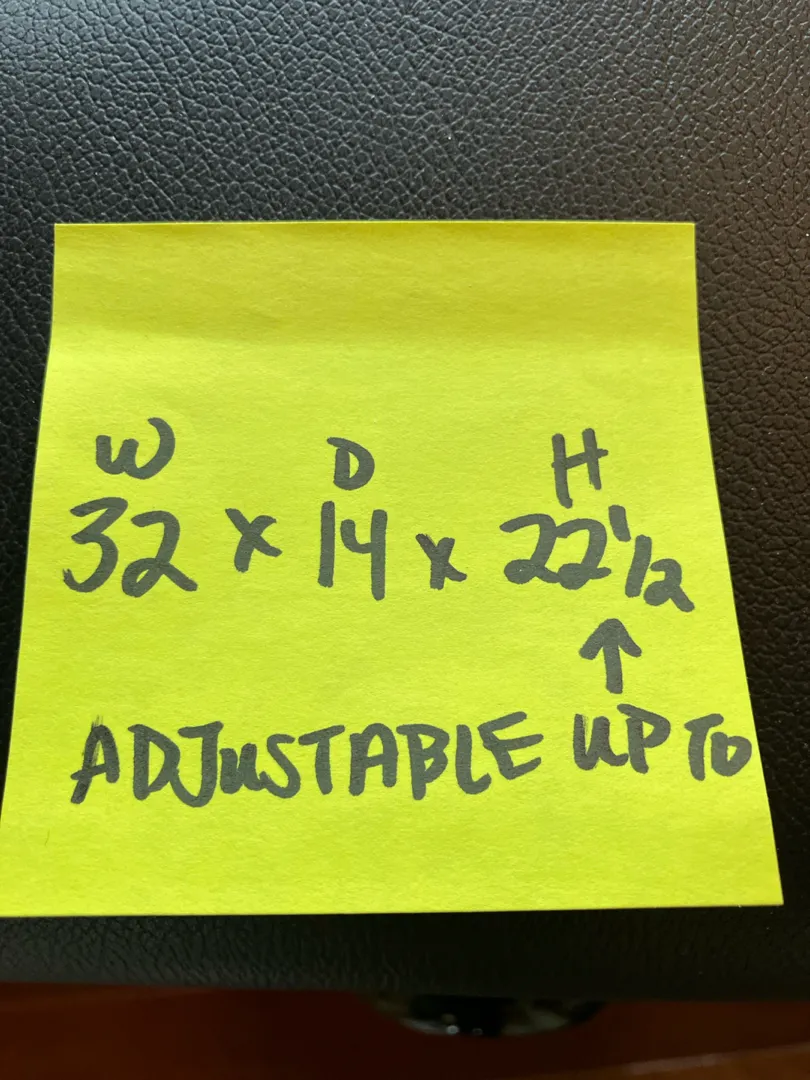 W D H
32 x 14 x 22 1/2
↑
ADJUSTABLE UP TO